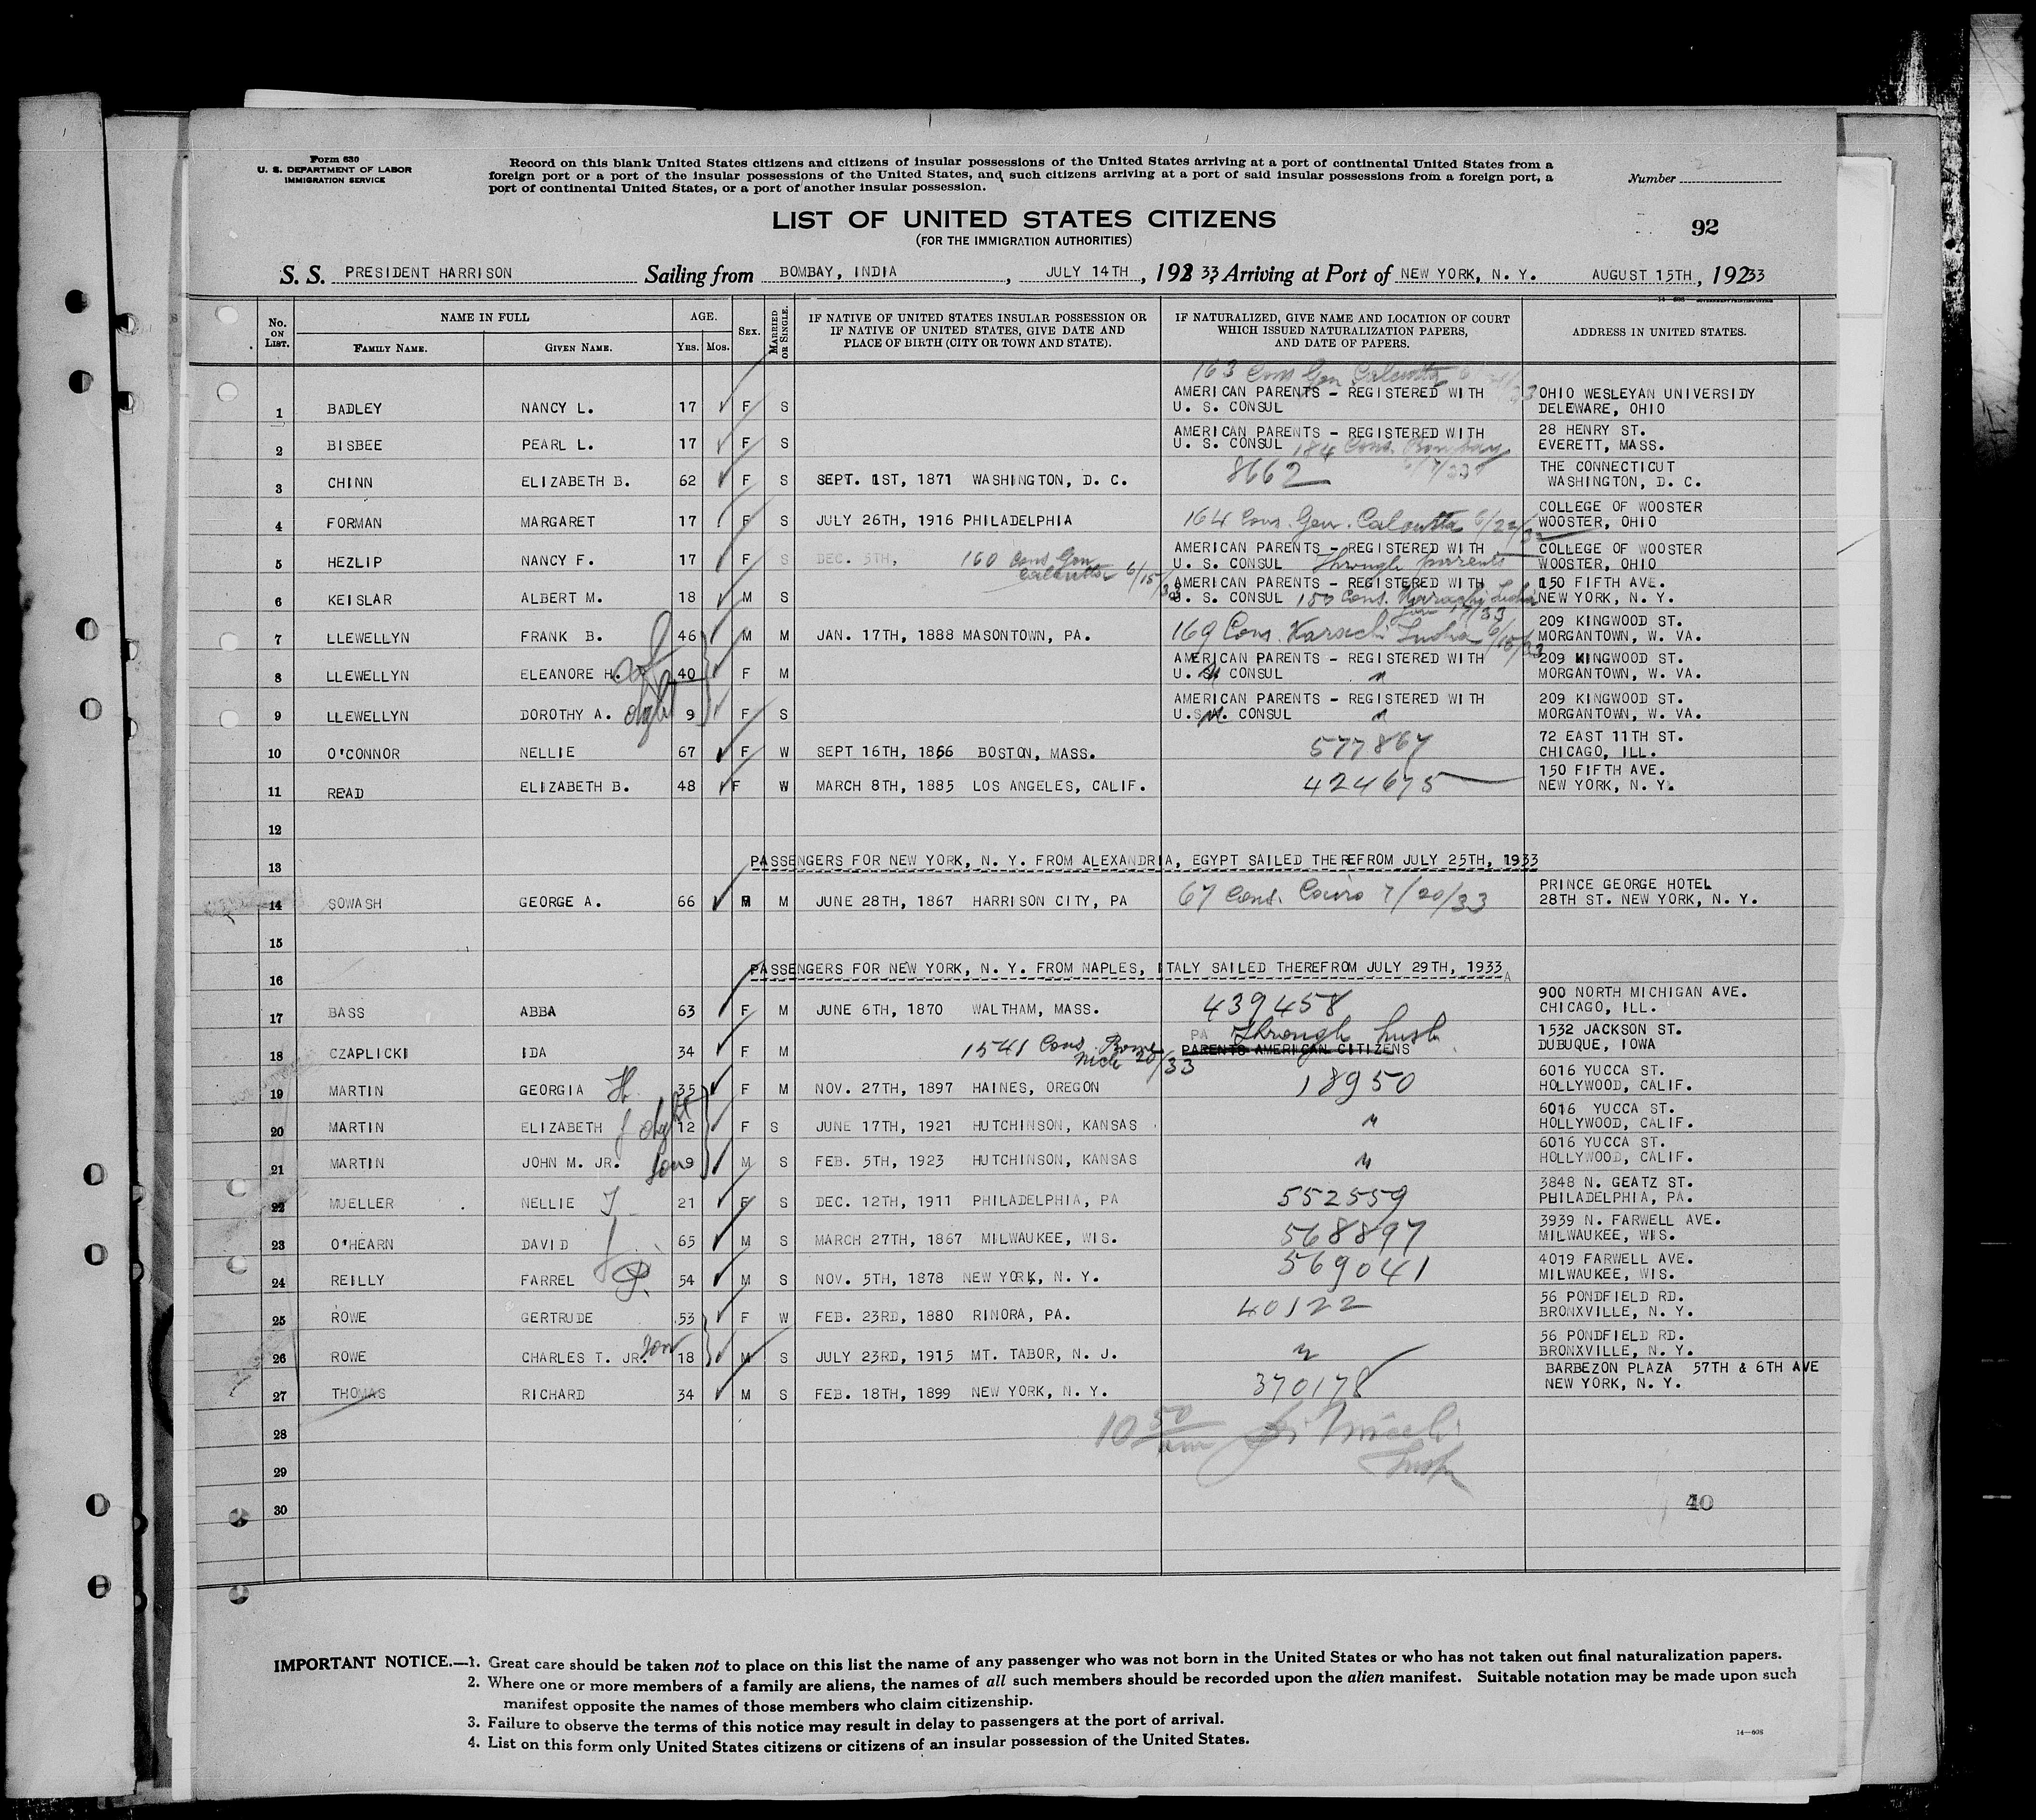 Form 630
U. S. DEPARTMENT OF LABOR
IMMIGRATION SERVICE
Record on this blank United States citizens and citizens of insular possessions of the United States arriving at a port of continental United States from a
foreign port or a port of the insular possessions of the United States, and such citizens arriving at a port of said insular possessions from a foreign port, a
port of continental United States, or a port of another insular possession.
Number
LIST OF UNITED STATES CITIZENS
(FOR THE IMMIGRATION AUTHORITIES)
92
S. S. PRESIDENT HARRISON Sailing from BOMBAY, INDIA, JULY 14TH, 192 33, Arriving at Port of NEW YORK, N. Y. AUGUST 15TH, 19233
No. ON LIST. NAME IN FULL AGE. SEX. MARRIED OR SINGLE. IF NATIVE OF UNITED STATES INSULAR POSSESSION OR IF NATIVE OF UNITED STATES, GIVE DATE AND PLACE OF BIRTH (CITY OR TOWN AND STATE). IF NATURALIZED, GIVE NAME AND LOCATION OF COURT WHICH ISSUED NATURALIZATION PAPERS, AND DATE OF PAPERS. ADDRESS IN UNITED STATES.
FAMILY NAME. GIVEN NAME. YRS. MOS.
163 Cons Gen Calcutta
1 BADLEY NANCY L. 17 F S AMERICAN PARENTS - REGISTERED WITH U. S. CONSUL OHIO WESLEYAN UNIVERSIDY DELEWARE, OHIO
2 BISBEE PEARL L. 17 F S AMERICAN PARENTS - REGISTERED WITH U. S. CONSUL 184 Cons. Bombay 28 HENRY ST. EVERETT, MASS.
3 CHINN ELIZABETH B. 62 F S SEPT. 1ST, 1871 WASHINGTON, D. C. 8662 THE CONNECTICUT WASHINGTON, D. C.
4 FORMAN MARGARET 17 F S JULY 26TH, 1916 PHILADELPHIA 164 Cons. Gen. Calcutta 6/22/33 COLLEGE OF WOOSTER WOOSTER, OHIO
5 HEZLIP NANCY F. 17 F S DEC. 5TH, 160 Cons Gen Calcutta 6/15/33 AMERICAN PARENTS - REGISTERED WITH U. S. CONSUL Through parents COLLEGE OF WOOSTER WOOSTER, OHIO
6 KEISLAR ALBERT M. 18 M S AMERICAN PARENTS - REGISTERED WITH U. S. CONSUL 153 Cons. Karachi India 150 FIFTH AVE. NEW YORK, N. Y.
7 LLEWELLYN FRANK B. 46 M M JAN. 17TH, 1888 MASONTOWN, PA. 169 Cons. Karachi India 6/15/33 209 KINGWOOD ST. MORGANTOWN, W. VA.
8 LLEWELLYN ELEANORE H. 40 F M AMERICAN PARENTS - REGISTERED WITH U. S. CONSUL " 209 KINGWOOD ST. MORGANTOWN, W. VA.
9 LLEWELLYN DOROTHY A. dght 9 F S AMERICAN PARENTS - REGISTERED WITH U.S.A. CONSUL " 209 KINGWOOD ST. MORGANTOWN, W. VA.
10 O'CONNOR NELLIE 67 F W SEPT 16TH, 1866 BOSTON, MASS. 577867 72 EAST 11TH ST. CHICAGO, ILL.
11 READ ELIZABETH B. 48 F W MARCH 8TH, 1885 LOS ANGELES, CALIF. 424675 150 FIFTH AVE. NEW YORK, N. Y.
12
13 PASSENGERS FOR NEW YORK, N. Y. FROM ALEXANDRIA, EGYPT SAILED THEREFROM JULY 25TH, 1933
14 SOWASH GEORGE A. 66 M M JUNE 28TH, 1867 HARRISON CITY, PA 67 Cons. Cairo 7/20/33 PRINCE GEORGE HOTEL 28TH ST. NEW YORK, N. Y.
15
16 PASSENGERS FOR NEW YORK, N. Y. FROM NAPLES, ITALY SAILED THEREFROM JULY 29TH, 1933
17 BASS ABBA 63 F M JUNE 6TH, 1870 WALTHAM, MASS. 439458 900 NORTH MICHIGAN AVE. CHICAGO, ILL.
18 CZAPLICKI IDA 34 F M 1541 Cons. Rome Mch 20/33 PA Through husb PARENTS AMERICAN CITIZENS 1532 JACKSON ST. DUBUQUE, IOWA
19 MARTIN GEORGIA H. 35 F M NOV. 27TH, 1897 HAINES, OREGON 18950 6016 YUCCA ST. HOLLYWOOD, CALIF.
20 MARTIN ELIZABETH dght 12 F S JUNE 17TH, 1921 HUTCHINSON, KANSAS " 6016 YUCCA ST. HOLLYWOOD, CALIF.
21 MARTIN JOHN M. JR. son 9 M S FEB. 5TH, 1923 HUTCHINSON, KANSAS " 6016 YUCCA ST. HOLLYWOOD, CALIF.
22 MUELLER NELLIE 21 F S DEC. 12TH, 1911 PHILADELPHIA, PA 552559 3848 N. GEATZ ST. PHILADELPHIA, PA.
23 O'HEARN DAVID J. 65 M S MARCH 27TH, 1867 MILWAUKEE, WIS. 568897 3939 N. FARWELL AVE. MILWAUKEE, WIS.
24 REILLY FARREL P. 54 M S NOV. 5TH, 1878 NEW YORK, N. Y. 569041 4019 FARWELL AVE. MILWAUKEE, WIS.
25 ROWE GERTRUDE 53 F W FEB. 23RD, 1880 RINORA, PA. 40122 56 PONDFIELD RD. BRONXVILLE, N. Y.
26 ROWE CHARLES T. JR. son 18 M S JULY 23RD, 1915 MT. TABOR, N. J. " 56 PONDFIELD RD. BRONXVILLE, N. Y.
27 THOMAS RICHARD 34 M S FEB. 18TH, 1899 NEW YORK, N. Y. 370178 BARBEZON PLAZA 57TH & 6TH AVE NEW YORK, N. Y.
28 10 50
29
30 40
IMPORTANT NOTICE.—1. Great care should be taken not to place on this list the name of any passenger who was not born in the United States or who has not taken out final naturalization papers.
2. Where one or more members of a family are aliens, the names of all such members should be recorded upon the alien manifest. Suitable notation may be made upon such
manifest opposite the names of those members who claim citizenship.
3. Failure to observe the terms of this notice may result in delay to passengers at the port of arrival.
4. List on this form only United States citizens or citizens of an insular possession of the United States.
14—608